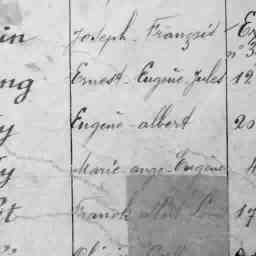 in Joseph - François Ex
n° 3
ng Ernest - Eugène Jules 12
y Eugène - albert 20
y Marie ange - Eugène 4
t Franck 17